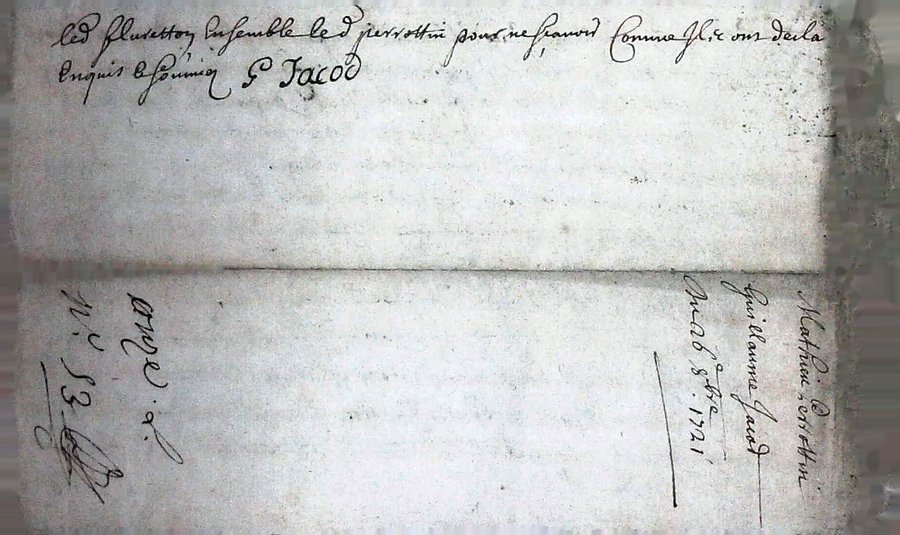 led fluretton Ensemble led perrottin pour ne sçavoir Comme Ils ont decla
Enquis & sommeq G Jacod
Mathieu perrottin
Guillaume Jacod
Du 26 8.bre 1721
onze
n.o 53